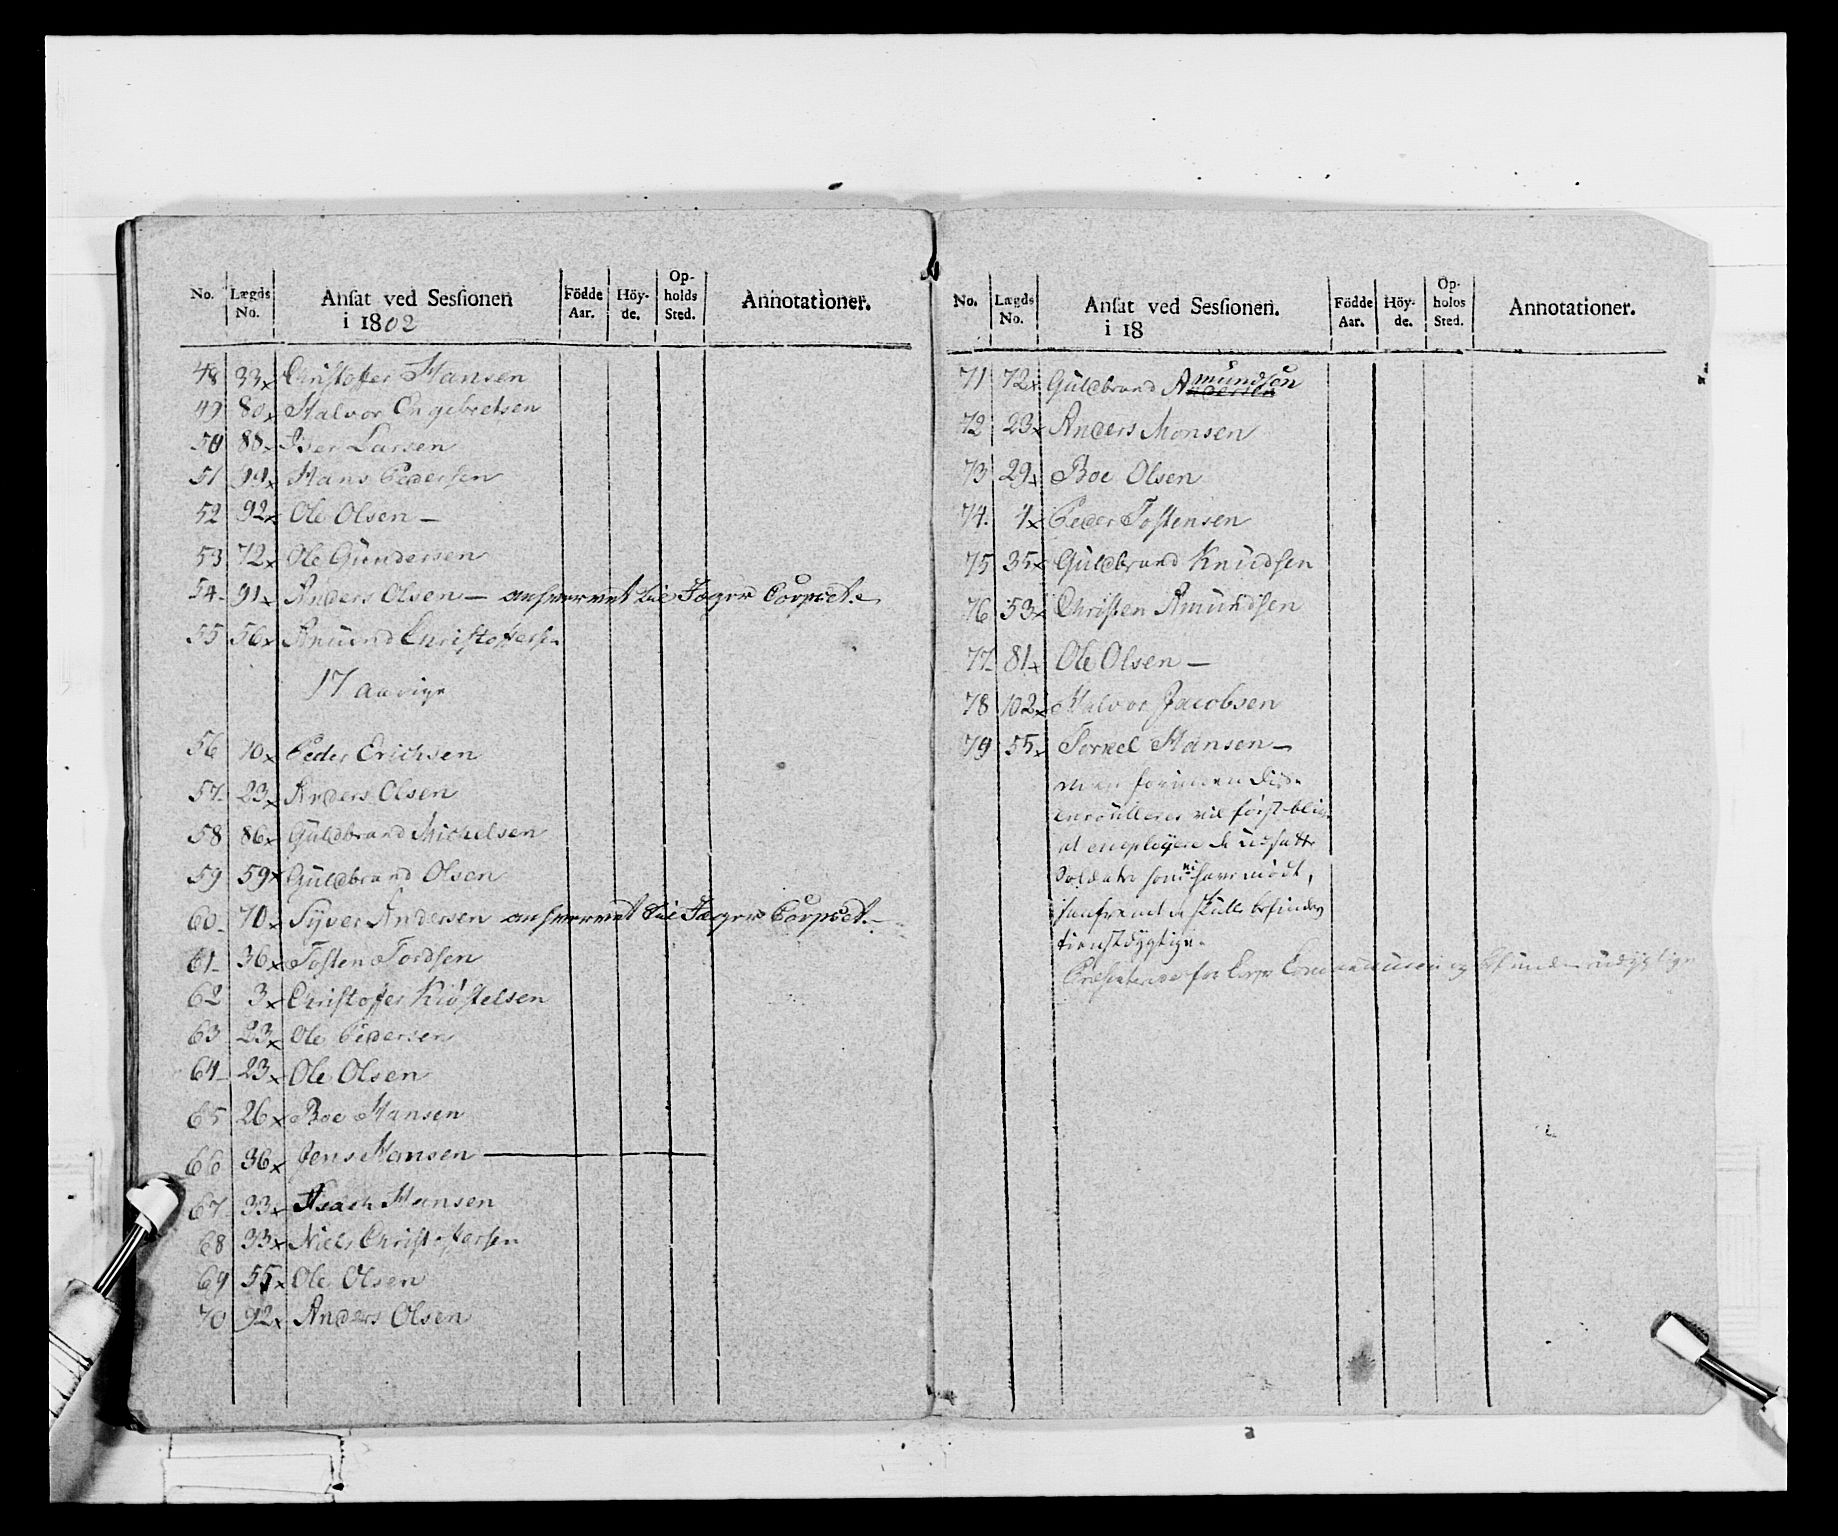 No. Lægds No. Ansat ved Sessionen i 1802 Födde Aar. Höy-de. Op-holds Sted. Annotationer.
48 33x Christoffer Hansen
49 80x Halvor Engebretsen
50 88x Iver Larsen
51 99x Hans Pedersen
52 92x Ole Olsen —
53 72x Ole Gundersen
54 91x Anders Olsen — anhvervet til Jæger Corpset.
55 56x Amund Christoffersen
17 aarige
56 10x Peder Erichsen
57 23x Anders Olsen
58 86x Guldbrand Michelsen
59 59x Guldbrand Olsen
60 70x Syver Andersen anhvervet til Jæger Corpset.
61 36x Tosten Tordsen
62 3x Christoffer Kiøstelsen
63 23x Ole Pedersen
64 23x Ole Olsen
65 26x Boe Hansen
66 36x Jens Hansen —
67 33x Isach Hansen
68 33x Niels Christoffersen
69 55x Ole Olsen
70 92x Anders Olsen
No. Lægds No. Ansat ved Sessionen. i 18 Födde Aar. Höy-de. Op-holos Sted. Annotationer.
71 72x Guldbrand Amundsøn
72 23x Anders Monsen
73 29x Boe Olsen
74. 4x Peder Tostensen
75 35x Guldbrand Knudsen
76 53x Christen Amundsen
77 81x Ole Olsen —
78 102x Halvor Jacobsen
79 55x Torkel Hansen —
men forinden disse
enroulleres vil først blive
at employere de udsatte
Soldater som ei have mødt,
saafremt de skulle befindes
tienstdygtige.
Præsenterede for og befunden udygtige